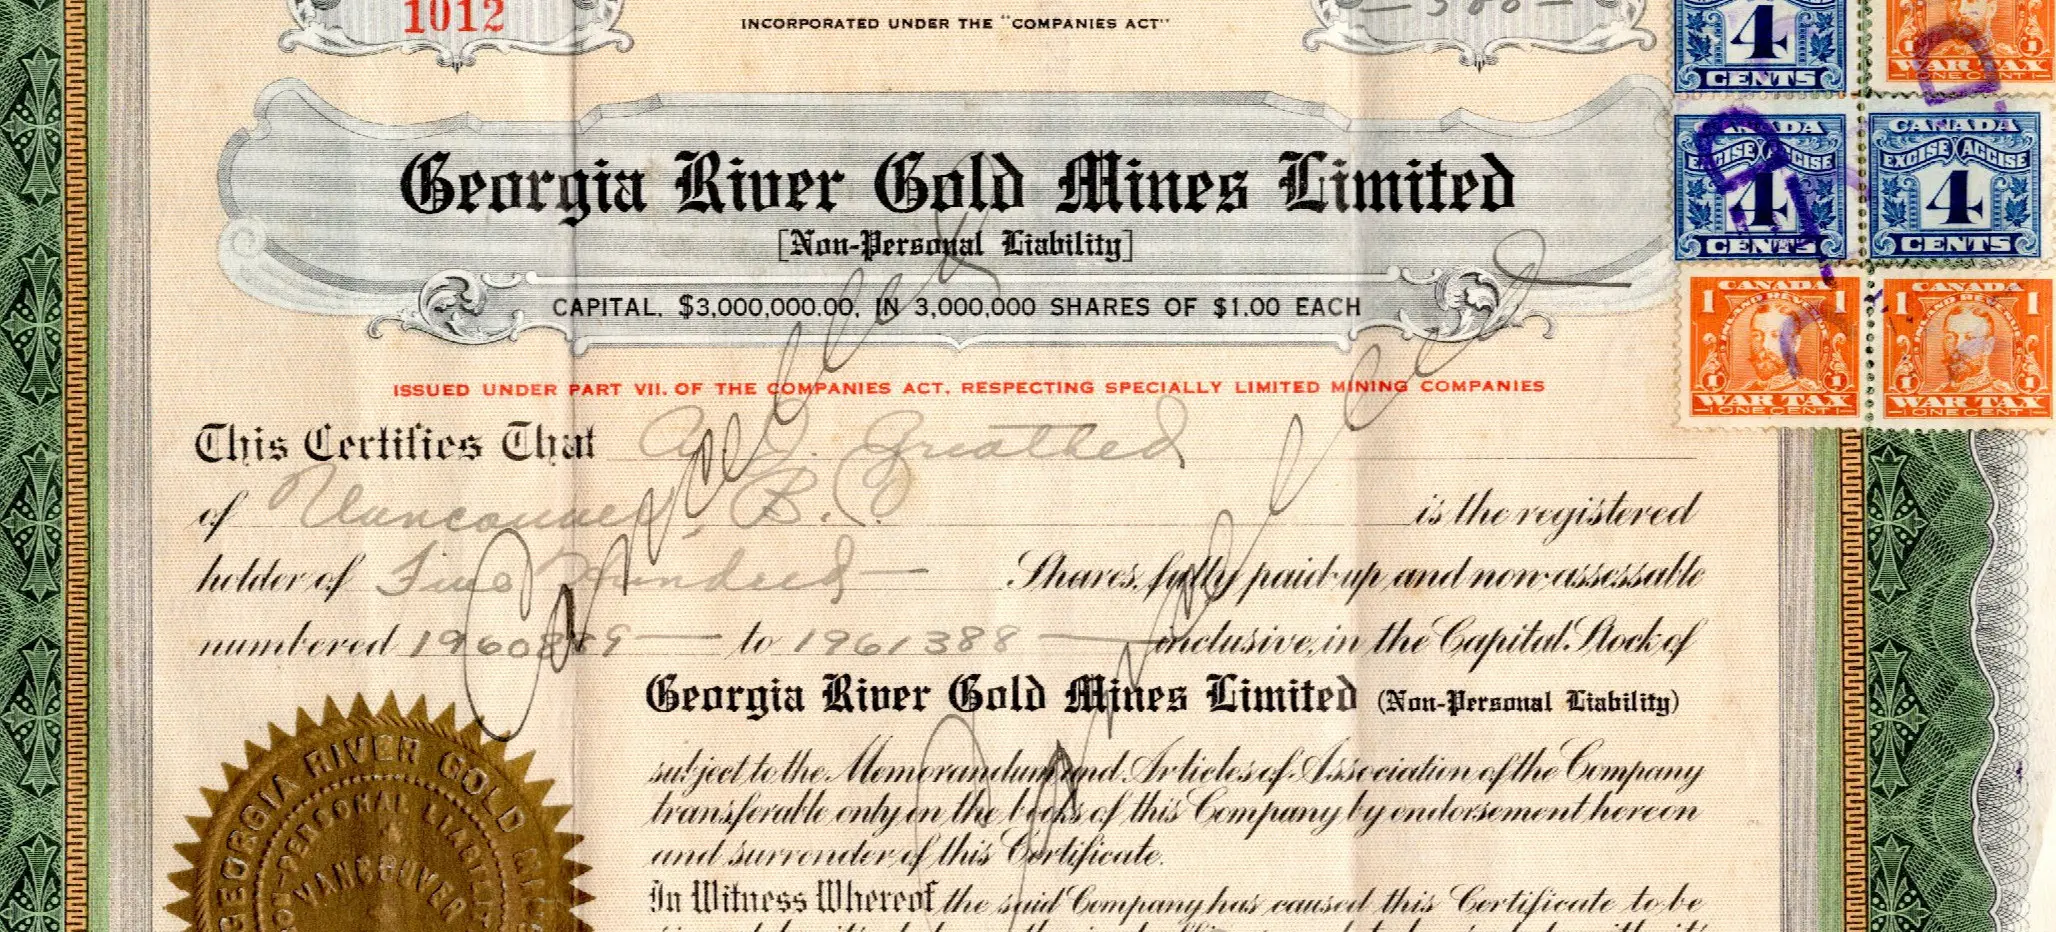 1012
INCORPORATED UNDER THE "COMPANIES ACT"
— 500 —
4
CENTS
1 1
WAR TAX
ONE CENT
Georgia River Gold Mines Limited
[Non-Personal Liability]
CAPITAL, $3,000,000.00, IN 3,000,000 SHARES OF $1.00 EACH
CANADA
EXCISE ACCISE
4
CENTS
CANADA
EXCISE ACCISE
4
CENTS
CANADA
1 INLAND REVENUE 1
1 1
WAR TAX
ONE CENT
CANADA
1 INLAND REVENUE 1
1 1
WAR TAX
ONE CENT
ISSUED UNDER PART VII. OF THE COMPANIES ACT, RESPECTING SPECIALLY LIMITED MINING COMPANIES
This Certifies That A. J. Greathed
of Vancouver, B.C. is the registered
holder of Five Hundred — Shares, fully paid-up and non-assessable
numbered 1960889 — to 1961388 — inclusive, in the Capital Stock of
Georgia River Gold Mines Limited (Non-Personal Liability)
subject to the Memorandum and Articles of Association of the Company
transferable only on the books of this Company by endorsement hereon
and surrender of this Certificate.
In Witness Whereof the said Company has caused this Certificate to be
Cancelled
Cancelled
GEORGIA RIVER GOLD MINES
NON-PERSONAL LIABILITY
VANCOUVER